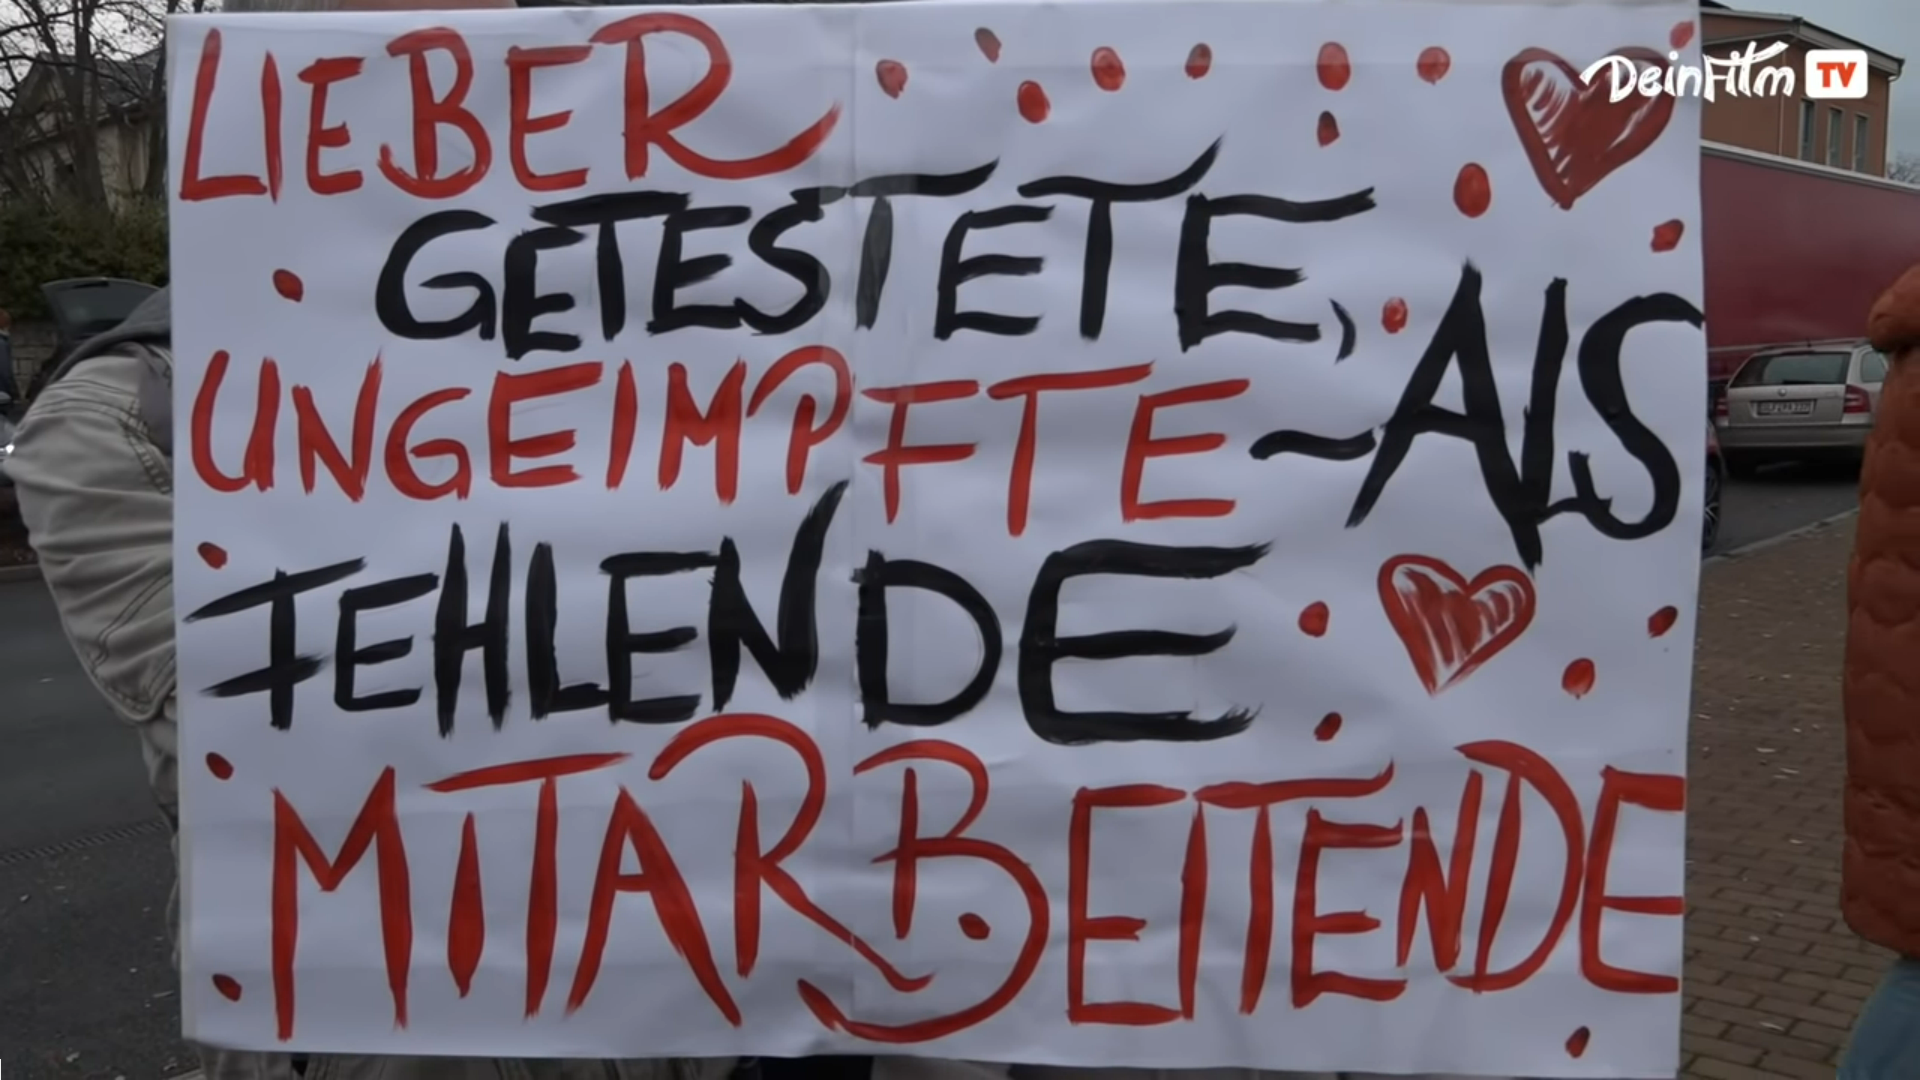 LIEBER
GETESTETE,
UNGEIMPFTE - ALS
FEHLENDE
MITARBEITENDE
DeinFilm TV